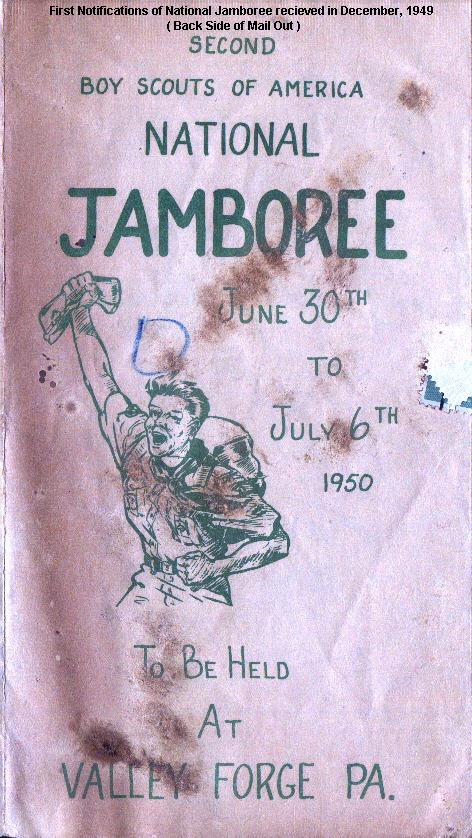 First Notifications of National Jamboree recieved in December, 1949
( Back Side of Mail Out )
SECOND
BOY SCOUTS OF AMERICA
NATIONAL
JAMBOREE
JUNE 30TH
D
TO
JULY 6TH
1950
TO BE HELD
AT
VALLEY FORGE PA.